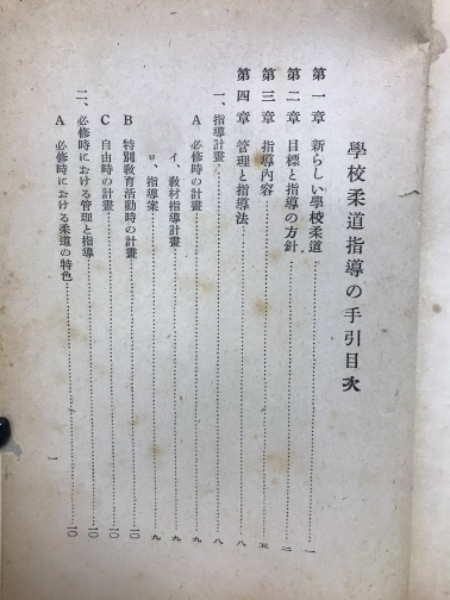 學校柔道指導の手引目次
第一章 新らしい學校柔道……一
第二章 目標と指導の方針……二
第三章 指導內容……五
第四章 管理と指導法……八
一、指導計畫……八
A 必修時の計畫……九
イ、敎材指導計畫……九
ロ、指導案……九
B 特別敎育活動時の計畫……一〇
C 自由時の計畫……一〇
二、必修時における管理と指導……一〇
A 必修時における柔道の特色……一〇
一